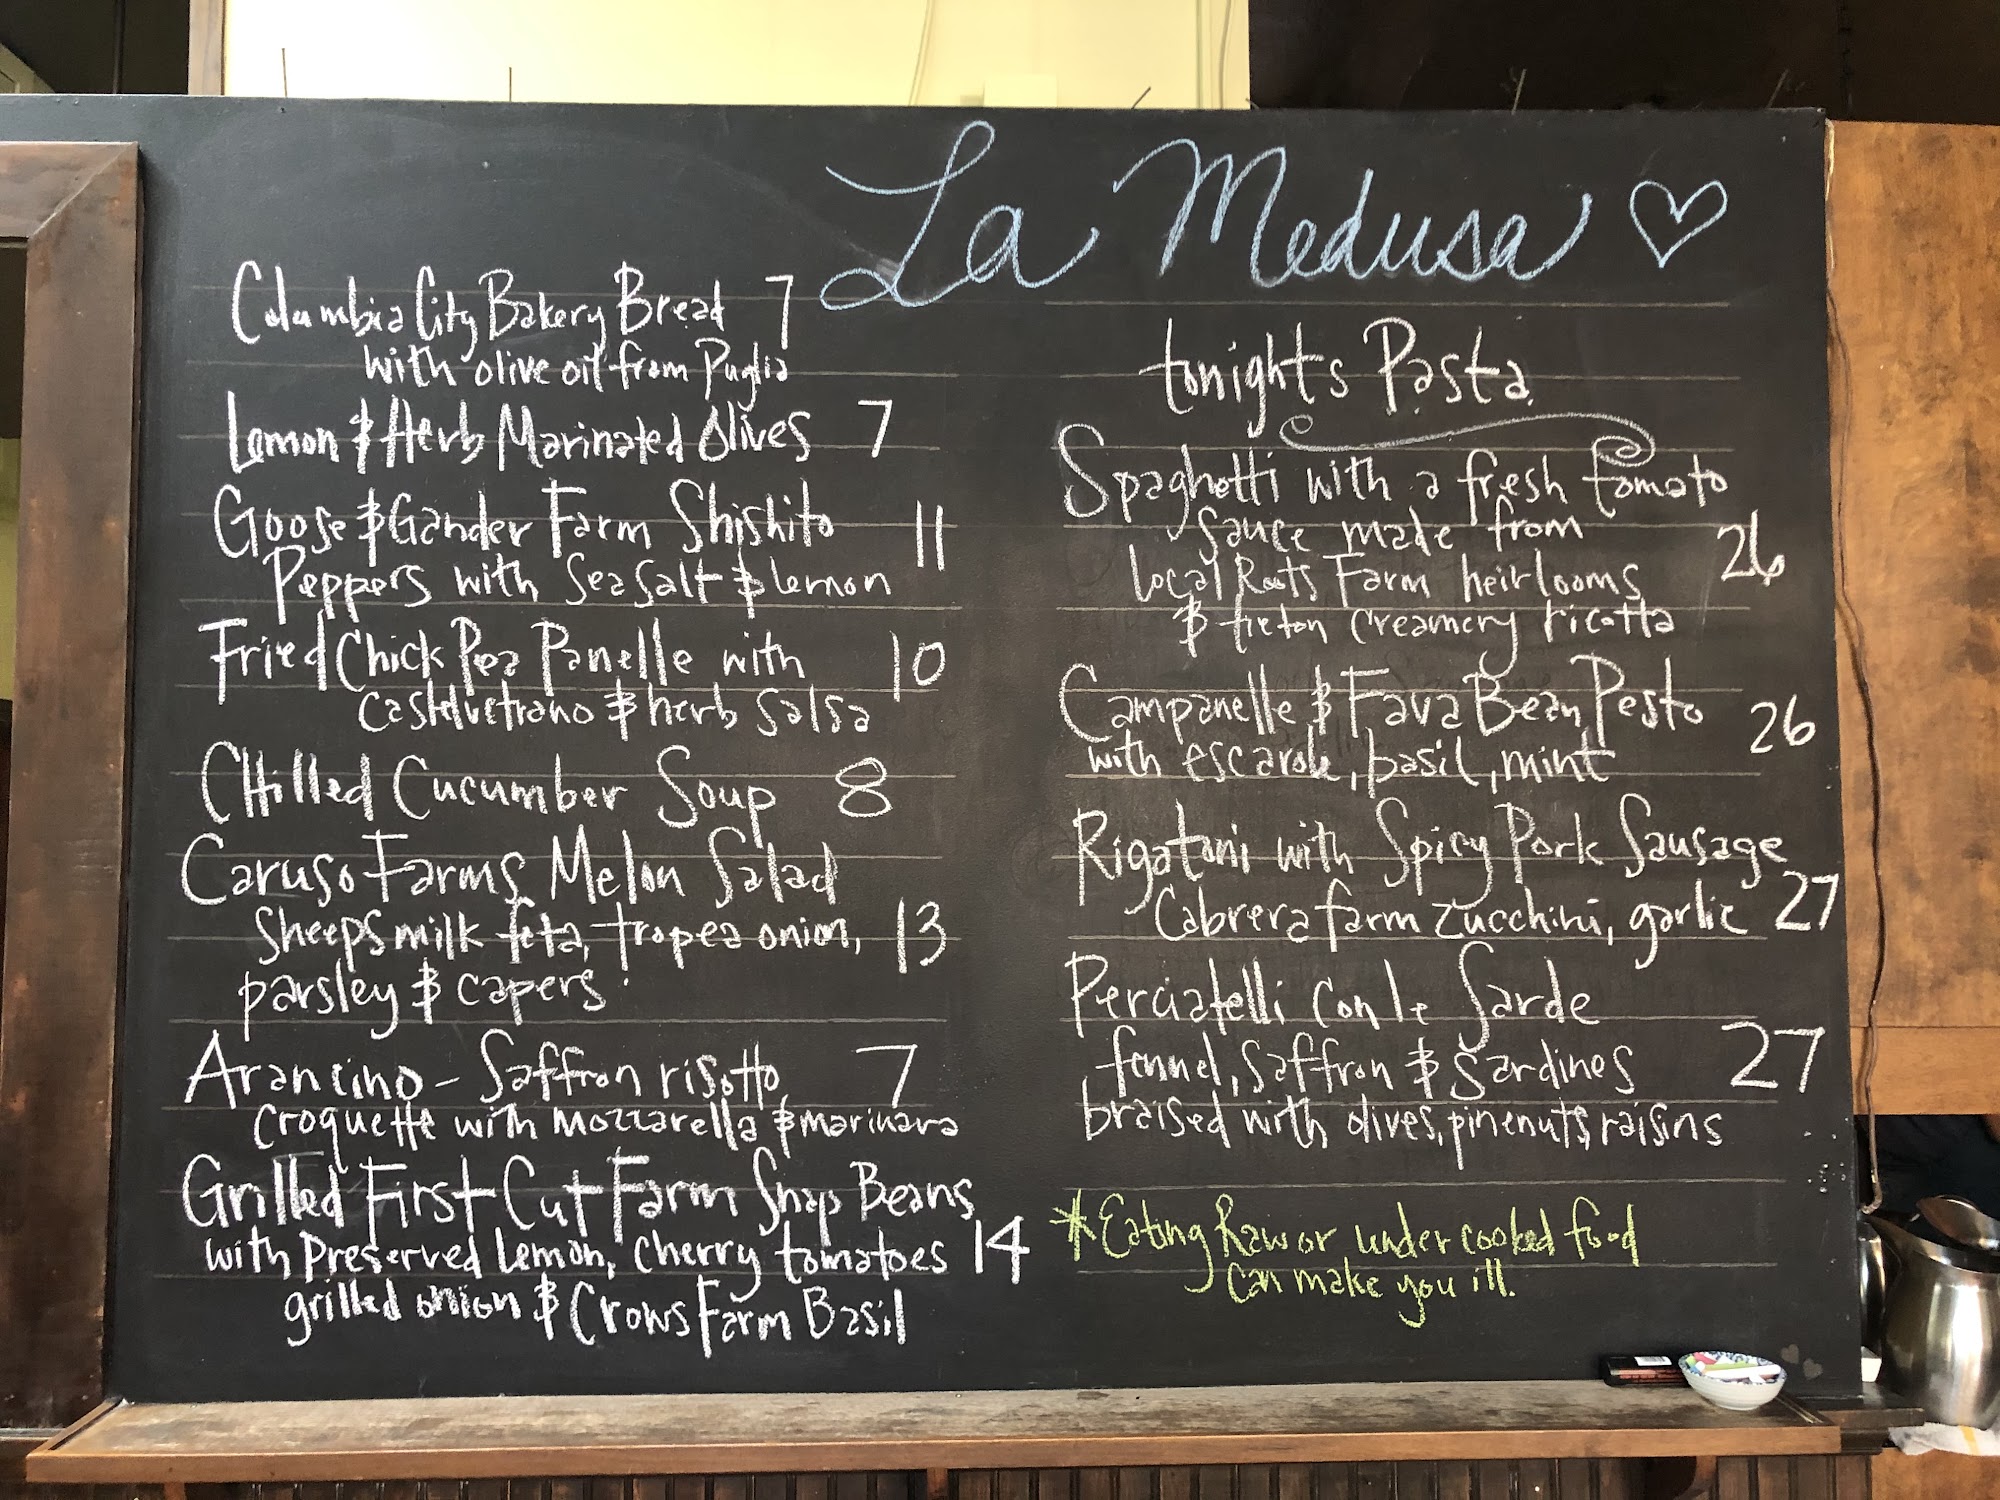 La Medusa
Columbia City Bakery Bread 7
with olive oil from Puglia
Lemon & Herb Marinated Olives 7
Goose & Gander Farm Shishito 11
Peppers with Sea Salt & lemon
Fried Chick Pea Panelle with 10
Castelvetrano & herb salsa
CHilled Cucumber Soup 8
Caruso Farms Melon Salad
Sheeps milk feta, tropea onion, 13
parsley & capers
Arancino - Saffron risotto 7
croquette with mozzarella & marinara
Grilled First Cut Farm Snap Beans
with preserved lemon, cherry tomatoes 14
grilled onion & Crows Farm Basil
tonight's Pasta
Spaghetti with a fresh tomato
sauce made from 26
Local Roots Farm heirlooms
& tieton creamery ricotta
Campanelle & Fava Bean Pesto 26
with escarole, basil, mint
Rigatoni with Spicy Pork Sausage
Cabrera farm zucchini, garlic 27
Perciatelli Con le Sarde
fennel, saffron & sardines 27
braised with olives, pinenuts, raisins
*Eating Raw or under cooked food
can make you ill.